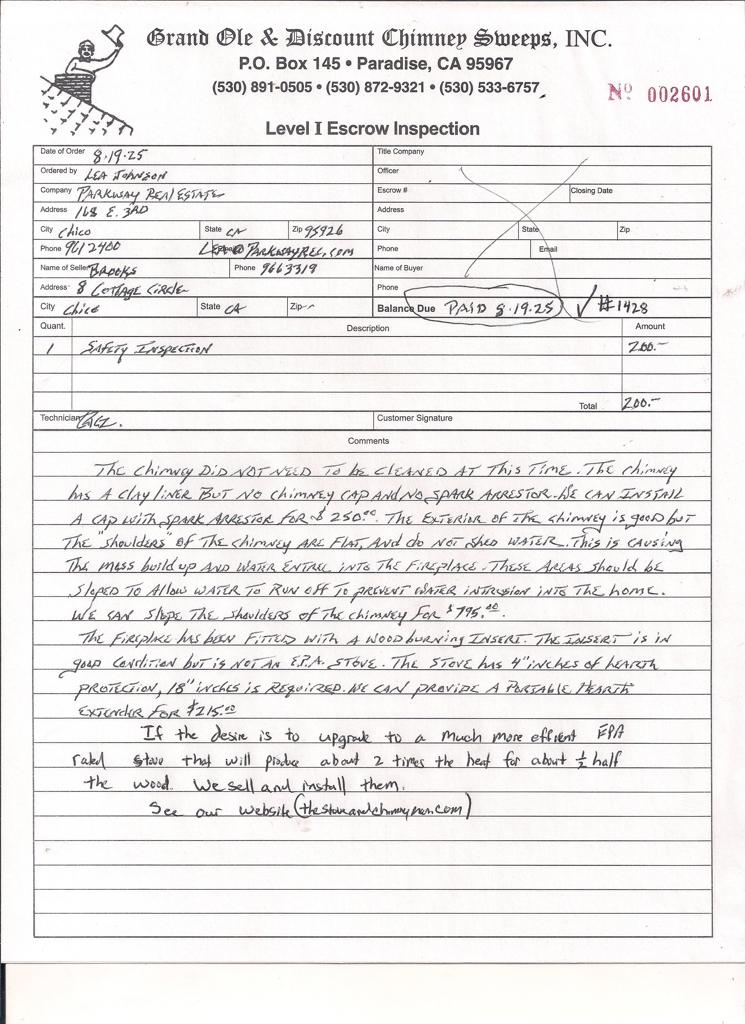 Grand Ole & Discount Chimney Sweeps, INC.
P.O. Box 145 • Paradise, CA 95967
(530) 891-0505 • (530) 872-9321 • (530) 533-6757
Nº 002601
Level I Escrow Inspection
Date of Order 8.19.25 Title Company
Ordered by LEA JOHNSON Officer
Company PARKWAY REAL ESTATE Escrow # Closing Date
Address 168 E. 3RD Address
City Chico State CA Zip 95926 City State Zip
Phone 961 2400 LEA@PARKWAYREC.COM Phone Email
Name of Seller BROOKS Phone 966 3319 Name of Buyer
Address 8 COTTAGE CIRCLE Phone
City Chico State CA Zip Balance Due PAID 8.19.25 ✓ #1428
Quant. Description Amount
1 SAFETY INSPECTION 200.-
Total 200.-
Technician Customer Signature
Comments
THE CHIMNEY DID NOT NEED TO BE CLEANED AT THIS TIME. THE CHIMNEY
HAS A CLAY LINER BUT NO CHIMNEY CAP AND NO SPARK ARRESTOR. WE CAN INSTALL
A CAP WITH SPARK ARRESTOR FOR $250.00. THE EXTERIOR OF THE CHIMNEY IS GOOD BUT
THE "SHOULDERS" OF THE CHIMNEY ARE FLAT, AND DO NOT SHED WATER. THIS IS CAUSING
THE MOSS BUILD UP AND WATER ENTREE INTO THE FIREPLACE. THESE AREAS SHOULD BE
SLOPED TO ALLOW WATER TO RUN OFF TO PREVENT WATER INTRUSION INTO THE HOME.
WE CAN SLOPE THE SHOULDERS OF THE CHIMNEY FOR $795.00.
THE FIREPLACE HAS BEEN FITTED WITH A WOODBURNING INSERT. THE INSERT IS IN
GOOD CONDITION BUT IS NOT AN E.P.A. STOVE. THE STOVE HAS 4" INCHES OF HEARTH
PROTECTION, 18" INCHES IS REQUIRED. WE CAN PROVIDE A PORTABLE HEARTH
EXTENDER FOR $215.00
If the desire is to upgrade to a much more effient EPA
rated stove that will produce about 2 times the heat for about ½ half
the wood. We sell and install them.
See our website (thestoveandchimneymen.com)